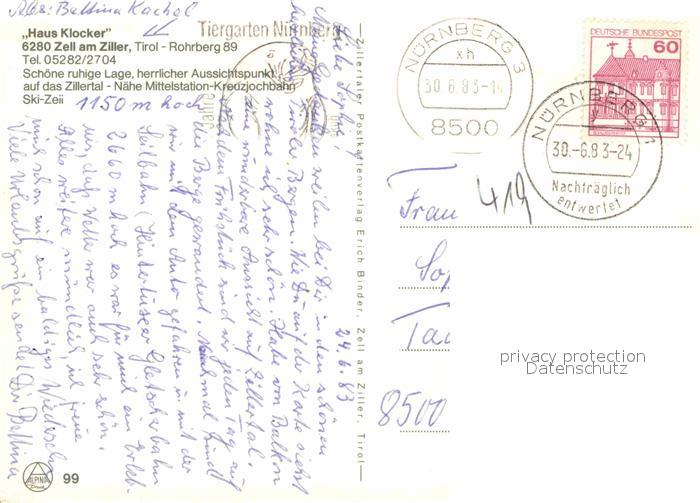 Abs: Bettina Kachel
„Haus Klocker"
6280 Zell am Ziller, Tirol - Rohrberg 89
Tel. 05282/2704
Schöne ruhige Lage, herrlicher Aussichtspunkt
auf das Zillertal - Nähe Mittelstation-Kreuzjochbahn
Ski-Zeii
1150 m hoch
Tiergarten Nürnberg
24.6.83
Liebe Sophie!
Meine Gedanken weilen bei Dir in den schönen
Tiroler Bergen. Wie Du auf der Karte siehst
wohne ich sehr schön. Habe vom Balkon
eine wunderbare Aussicht auf Zillertal.
Nach dem Frühstück sind wir jeden Tag auf
die Berge gewandert. Manchmal sind
wir mit dem Auto gefahren u. mit der
Seilbahn (Hintertuxer Gletscherbahn
2660 m hoch es war für mich ein Erleb-
nis, das Wetter war auch sehr schön.
Alles weitere mündlich, ich freue
mich schon auf ein baldiges Wiedersehen
Viele Urlaubsgrüße sendet Dir Bettina
—Zillertaler Postkartenverlag Erich Binder, Zell am Ziller, Tirol—
ALPINA
Druck
99
NÜRNBERG 3
xh
30.6.83-14
8500
DEUTSCHE BUNDESPOST
60
NÜRNBERG 1
30.-6.83-24
Nachträglich
entwertet
419
Frau
So
Ta
8500
privacy protection
Datenschutz